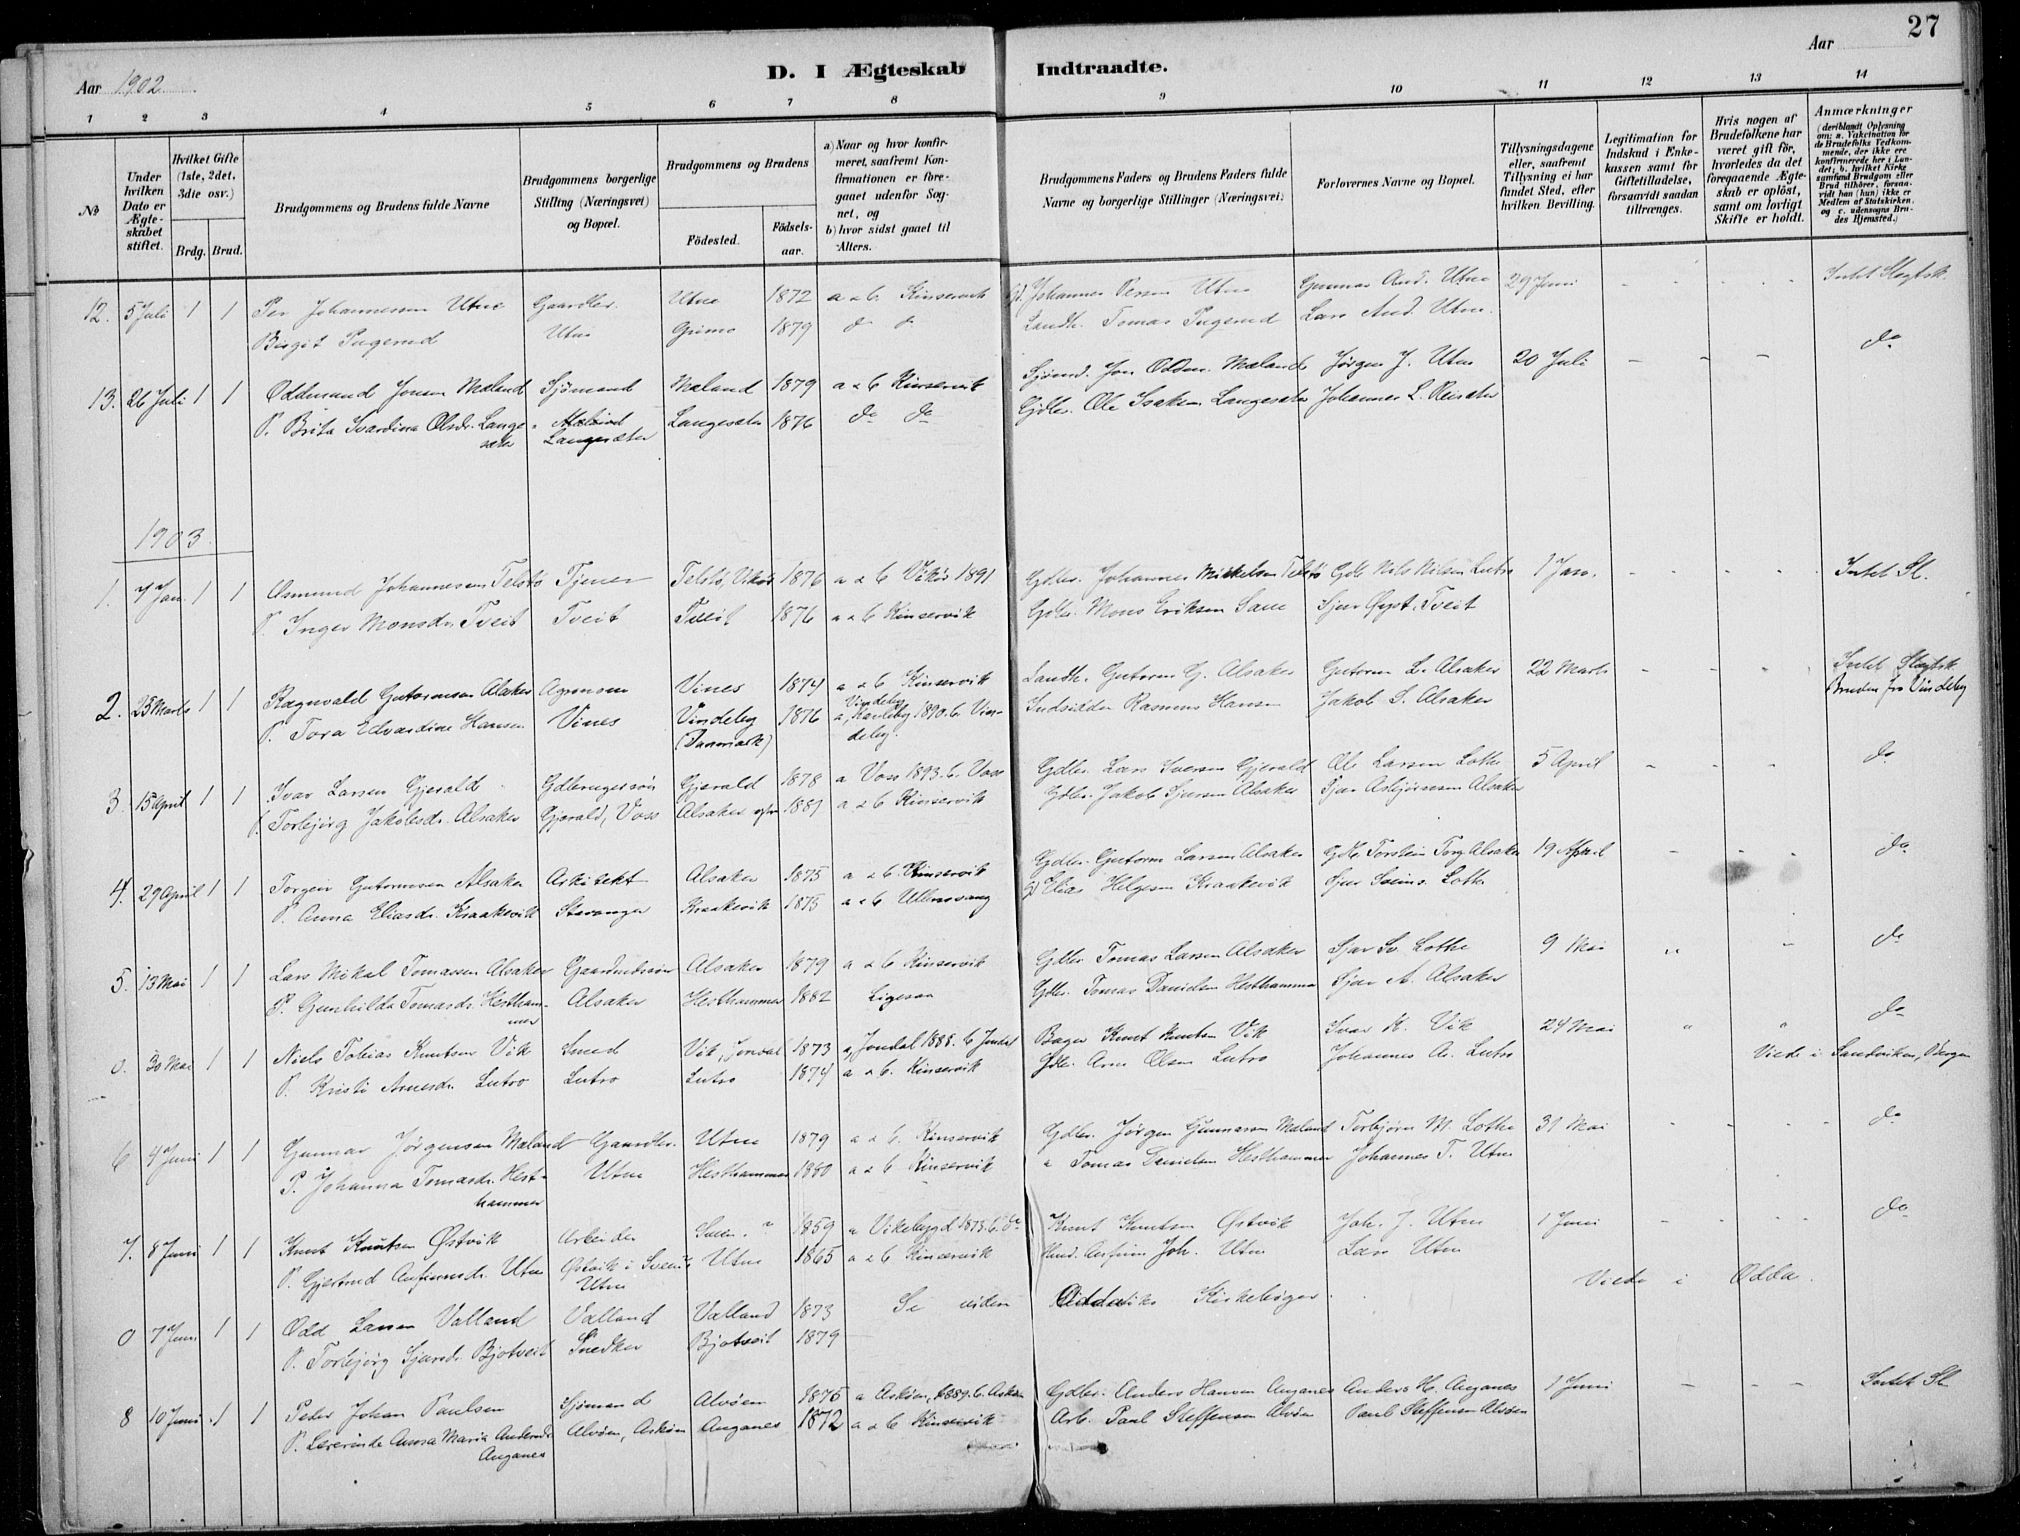 27
Aar 1902
D. I Ægteskab Indtraadte.
Aar
1 2 3 4 5 6 7 8 9 10 11 12 13 14
No
Under hvilken Dato er Ægteskabet stiftet.
Hvilket Gifte (1ste, 2det, 3die osv.)
Brdg. Brud.
Brudgommens og Brudens fulde Navne
Brudgommens borgerlige Stilling (Næringsvei) og Bopæl.
Brudgommens og Brudens
Födested. Födsels-aar.
a) Naar og hvor konfirmeret, saafremt Konfirmationen er foregaaet udenfor Sognet, og b) hvor sidst gaaet til Alters.
Brudgommens Faders og Brudens Faders fulde Navne og borgerlige Stillinger (Næringsvei)
Forlovernes Navne og Bopæl.
Tillysningsdagene eller, saafremt Tillysning ei har fundet Sted, efter hvilken Bevilling.
Legitimation for Indskud i Enkekassen samt for Giftetilladelse, forsaavidt saadan tiltrænges.
Hvis nogen af Brudefolkene har været gift för, hvorledes da det foregaaende Ægteskab er oplöst, samt om lovligt Skifte er holdt.
Anmærkninger (deriblandt Oplysning om: a. Vakcination for de Brudefolks Vedkommende, der ikke ere konfirmerede her i Landet; b. hvilket Kirkesamfund Brudgom eller Brud tilhörer, forsaavidt han (hun) ikke er Medlem af Statskirken, og c. udensogns Brudes Hjemsted.)
12. 5 Juli 1 1 Per Johannessen Utne Gaardbr. Utne 1872 a & b. Kinservik Johannes Persen Utne Gunnar And. Utne 29 Juni Intet Slegtsk.
Birgit Pugerud Utne Grimo 1879 do do Landh. Tomas Pugerud Lars And. Utne
13. 26 Juli 1 1 Oddmund Jonsen Mæland Sjømand Mæland 1879 a & b Kinservik Sjømd. Jon Oddm. Mæland Jørgen J. Utne 20 Juli do
P. Brita Svardina Olsdr. Langesæter Mæland Langesæter Langesæter 1876 do do Gdbr. Ole Isaksen Langesæter Johannes L. Reisæter
1903.
1. 7 Jan. 1 1 Osmund Johannessen Telstø Tjener Telstø, Vikør 1876 a & b Vikør 1891 Gdbr. Johannes Mikkelsen Telstø Gdb. Nils Nilsen Lutro 1 Jan. Intet Sl.
P. Inger Monsdr. Tveit Tveit Tveit 1876 a & b Kinservik Gdbr. Mons Eriksen Sjur Tveit
2. 25 Marts 1 1 Ragnvald Gutormsen Alsaker Agronom Vines 1874 a & b Kinservik Landh. Gutorm G. Alsaker Gutorm L. Alsaker 22 Marts Intet Slegtsk.
P. Tora Edvardine Hansen Vines Vindeby (Danmark) 1876 a, Vindeby 1890. b. Vindeby. Indsidder Rasmus Hansen Jakob S. Alsaker Bruden fra Vindeby
3. 15 April 1 1 Ivar Larsen Gjerald Gdbrugersøn Gjerald 1878 a Voss 1893. b. Voss Gdbr. Lars Iversen Gjerald Ole Larsen Lothe 5 April do
P. Torbjørg Jakobsdr. Alsaker Gjerald, Voss Alsaker 1881 a & b Kinservik Gdbr. Jakob Sjursen Alsaker Sjur Asbjørnsen Alsaker
4. 29 April 1 1 Torgeir Gutormsen Alsaker Arkitekt Alsaker 1875 a & b. Kinservik Gdbr. Gutorm Larsen Alsaker Gdb. Torstein Torg. Alsaker 19 April do
P. Anna Eliasdr. Kraakevik Stavanger Kraakevik 1875 a & b Ullensvang Elias Helgesen Kraakevik Sjur Lothe
5. 13 Mai 1 1 Lars Mikal Tomassen Alsaker Alsaker 1879 a & b. Kinservik Gdbr. Tomas Larsen Alsaker Sjur Sv. Lothe 9 Mai do
P. Gunhilda Tomasdr. Hesthammer Alsaker Hesthammer 1882 Ligesaa Gdbr. Tomas Danielsen Hesthammer Sjur A. Alsaker
0. 30 Mai 1 1 Niels Tobias Knutsen Vik Smed Vik, Jondal 1873 a, Jondal 1888. b Jondal Bager Knut Knutsen Vik Ivar K. Vik 24 Mai do
P. Kristi Arnesdr. Lutro Lutro Lutro 1874 a & b. Kinservik Gdbr. Arne Olsen Lutro Johannes Lutro Viede i Sandviken, Bergen
6 4 Juni 1 1 Gunnar Jørgensen Mæland Gaardbr. Utne 1879 a & b. Kinservik Gdbr. Jørgen Gunnarsen Mæland Torbjørn M. Lothe 31 Mai do
P. Johanna Tomasdr. Hesthammer Utne Hesthammer 1880 a & b Kinservik Tomas Danielsen Hesthammer Johannes T. Utne
7. 8 Juni 1 1 Knut Knutsen Østvik Arbeider 1859 a Vikebygd 1875. b. do Knut Knutsen Østvik Joh. J. Utne 1 Juni do
P. Gjertrud Anfinnsdr. Utne Østvik i Utne Utne 1865 a & b Kinservik Anfinn Joh. Utne Lars Utne
0 7 Juni 1 1 Odd Larsen Valland Valland Valland 1873 Se Kirkebøger. Viede i Odda.
P. Torbjørg Sjursdr. Bjotveit Snedker Bjotveit 1879
8 10 Juni 1 1 Peter Johan Paulsen Sjømand Alvøen 1875 a Askøen, 1889. b. Askøen Gdbr. Anders Hansen Anganes Anders H. Anganes 1 Juni Intet Sl
P. Anna Maria Andersdr. Anganes Alvøen, Askøen Anganes 1872 a & b Kinservik Arb. Paul Steffensen Alvøen Paul Steffensen Alvøen